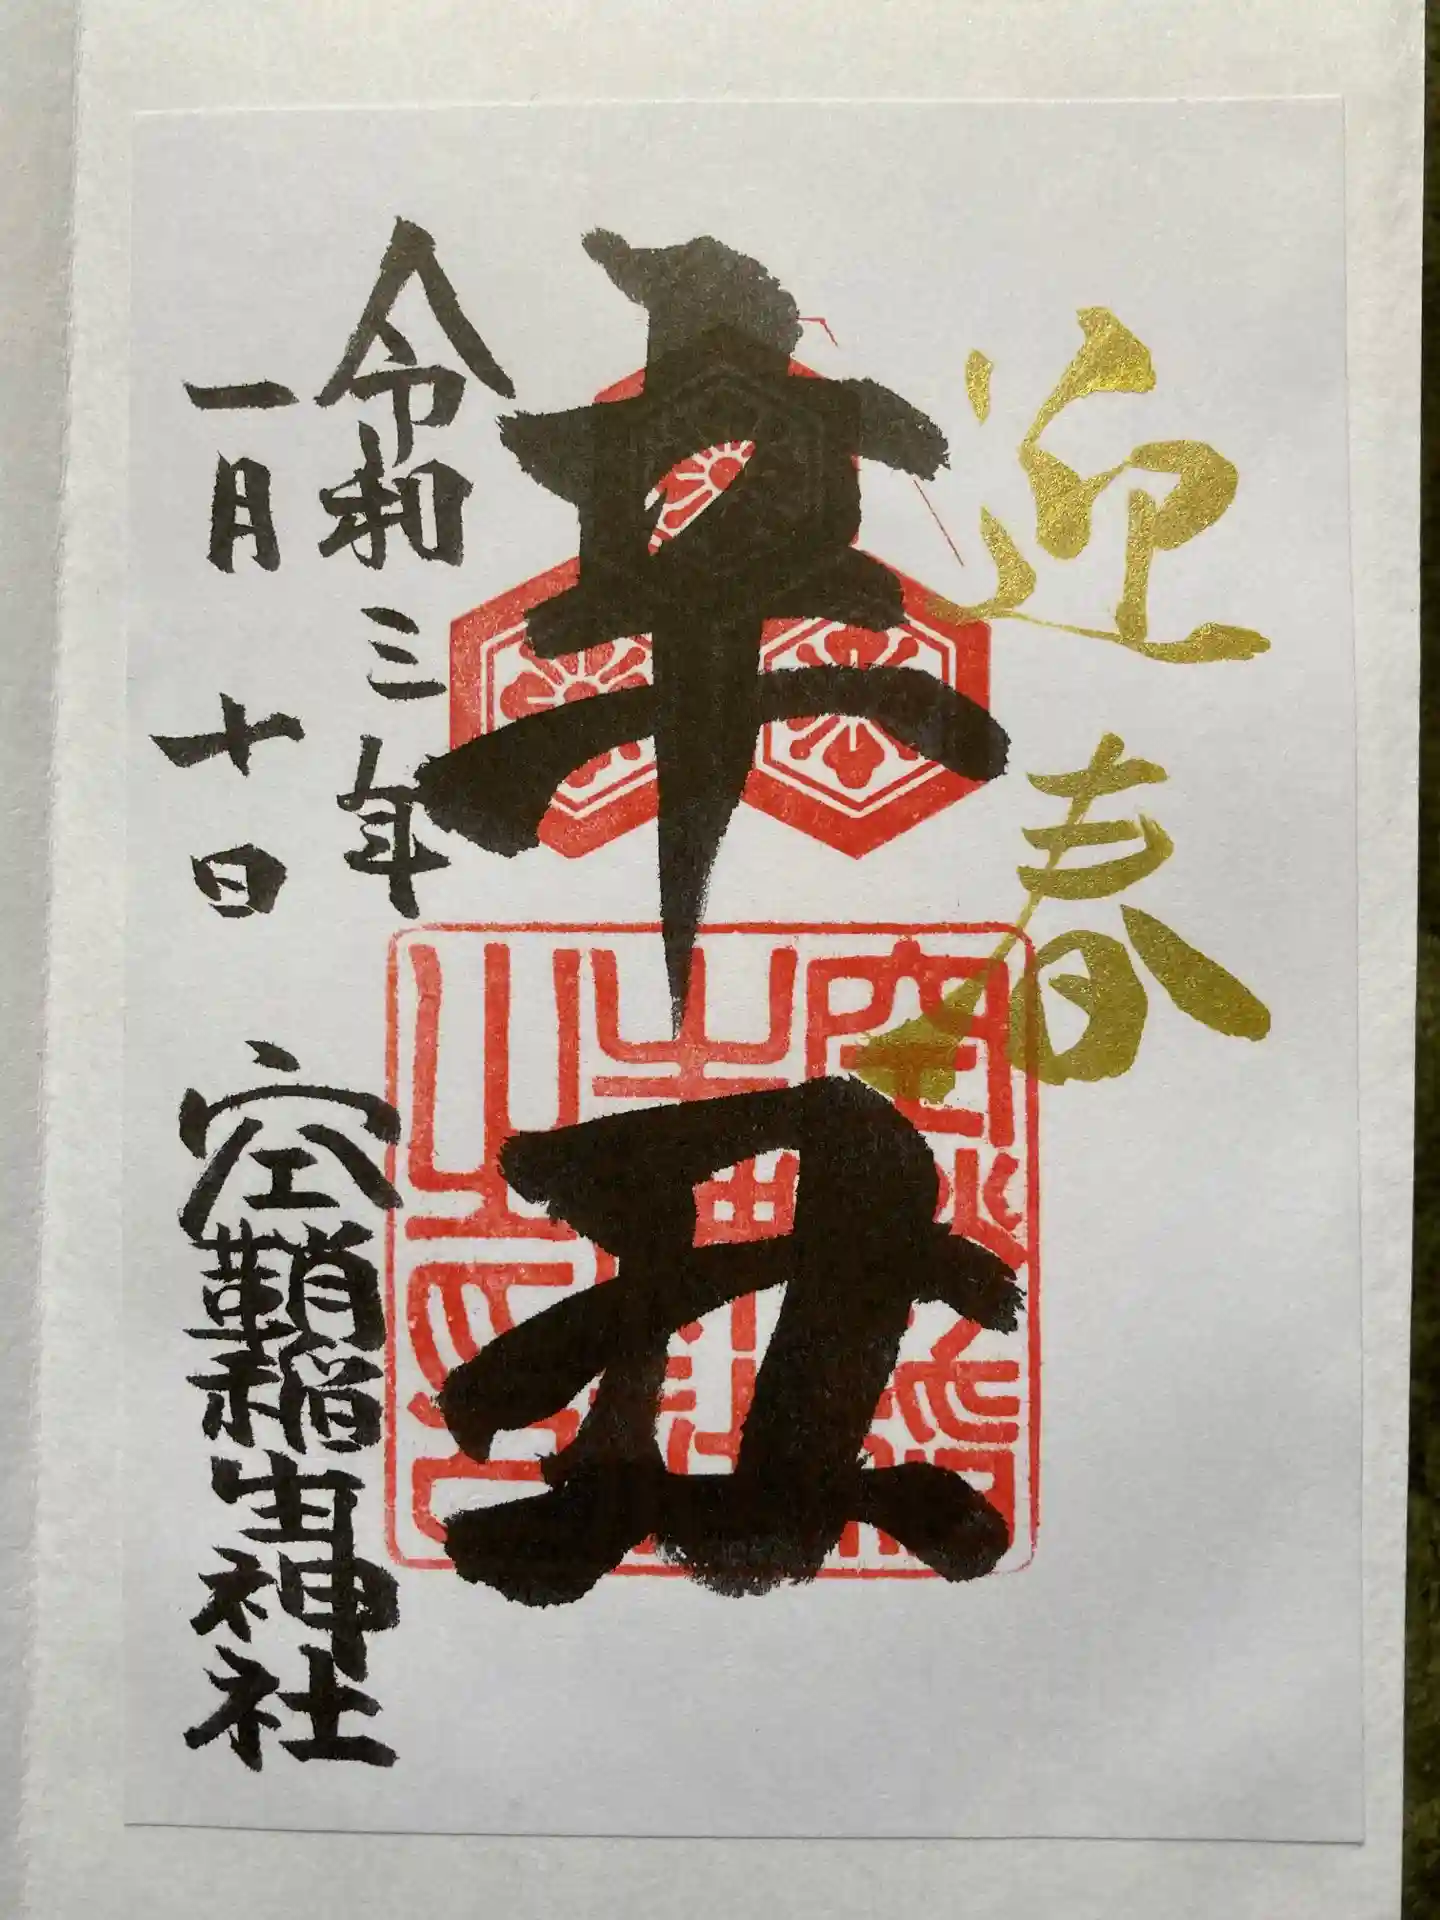 迎春
辛丑
令和三年
一月十日
空鞘稲生神社